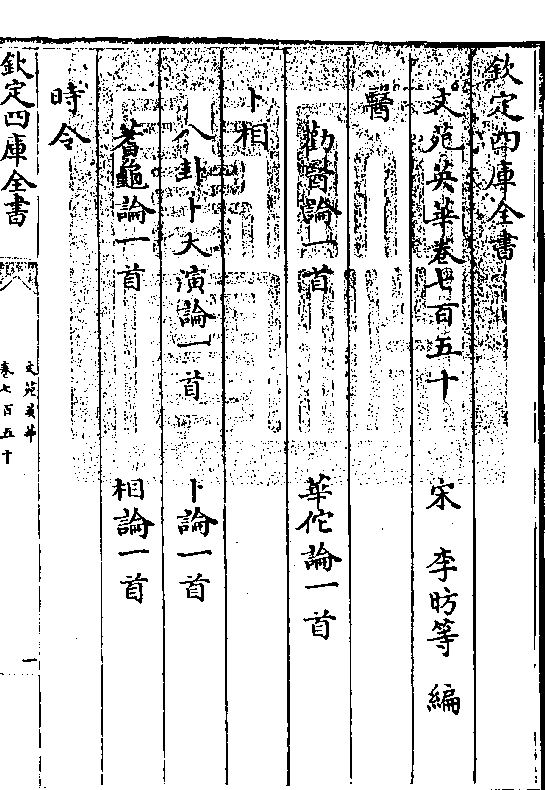 欽定四庫全書
文苑英華卷七百五十　宋　李昉等　編
醫
勸醫論一首　華佗論一首
卜相
八卦卜大演論一首　卜論一首
蓍龜論一首　相論一首
時令
欽定四庫全書
文苑英華
卷七百五十
一